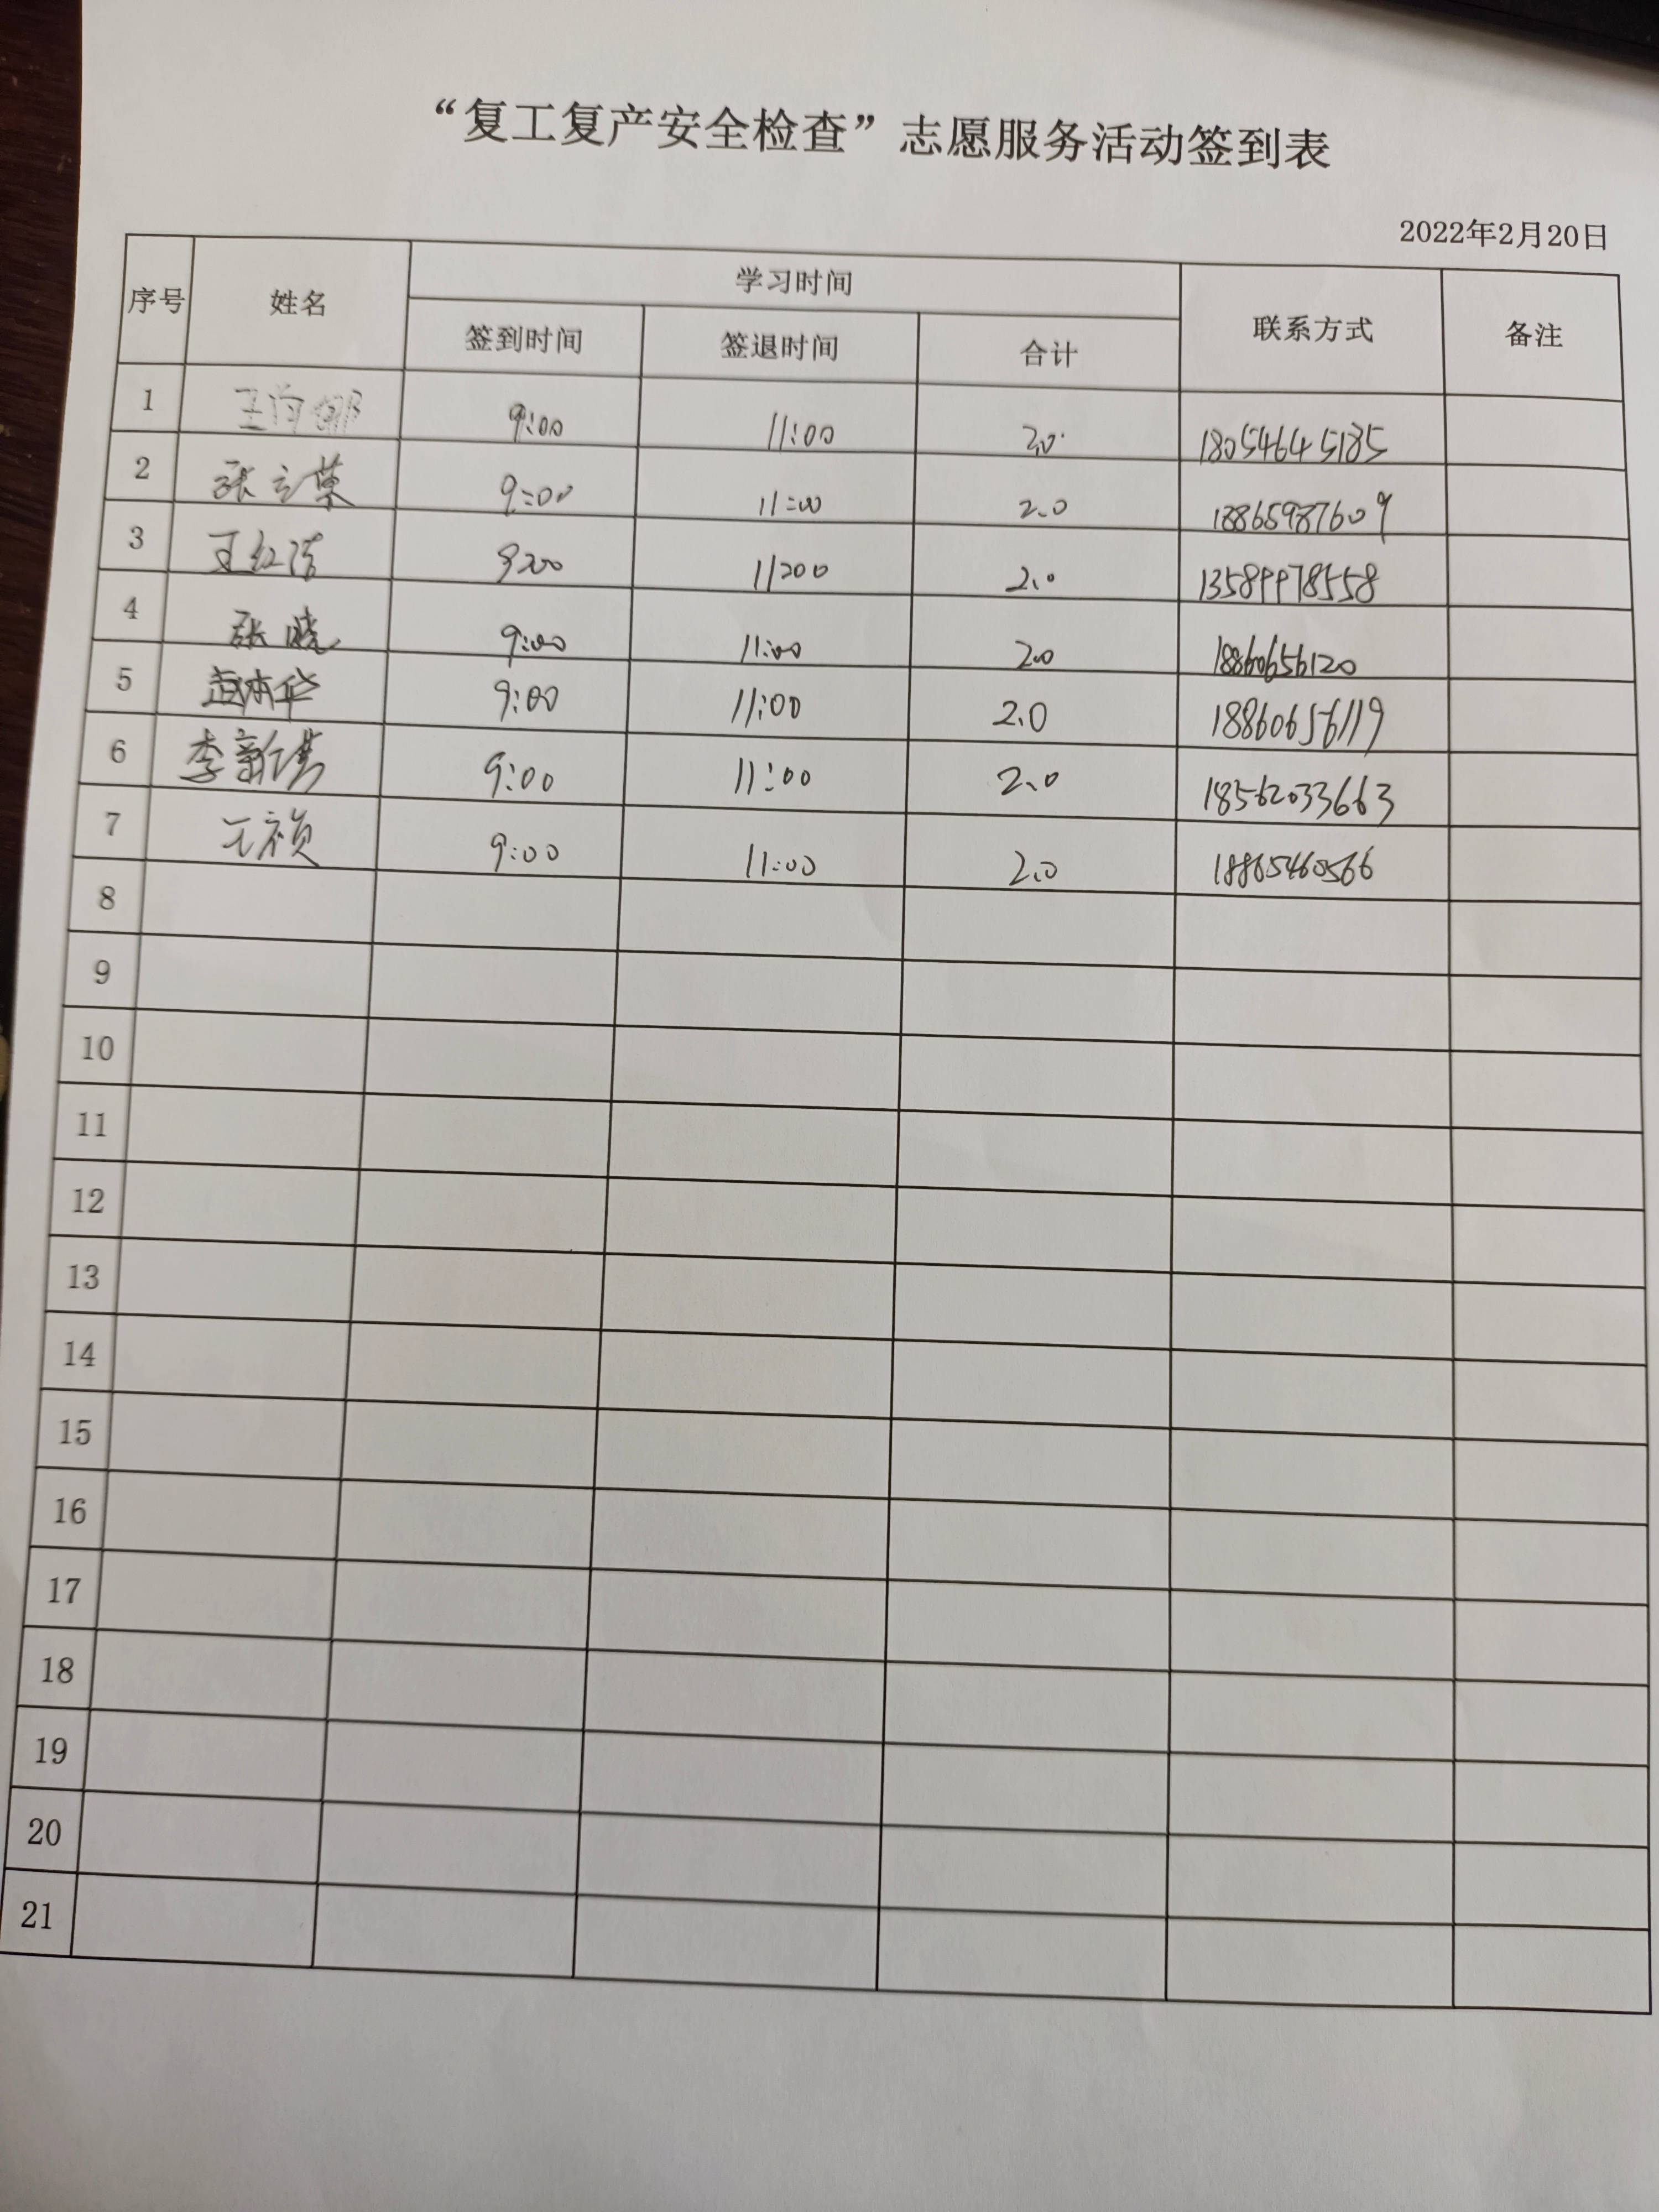 “复工复产安全检查”志愿服务活动签到表
2022年2月20日
序号 姓名 学习时间 联系方式 备注
签到时间 签退时间 合计
1 9:00 11:00 2.0 18054645185
2 张立荣 9:00 11:00 2.0 18865987609
3 王红洁 9:00 11:00 2.0 13589978558
4 张晓 9:00 11:00 2.0 18860656120
5 赵本华 9:00 11:00 2.0 18860656119
6 李新 9:00 11:00 2.0 18562033663
7 9:00 11:00 2.0 18865460566
8
9
10
11
12
13
14
15
16
17
18
19
20
21